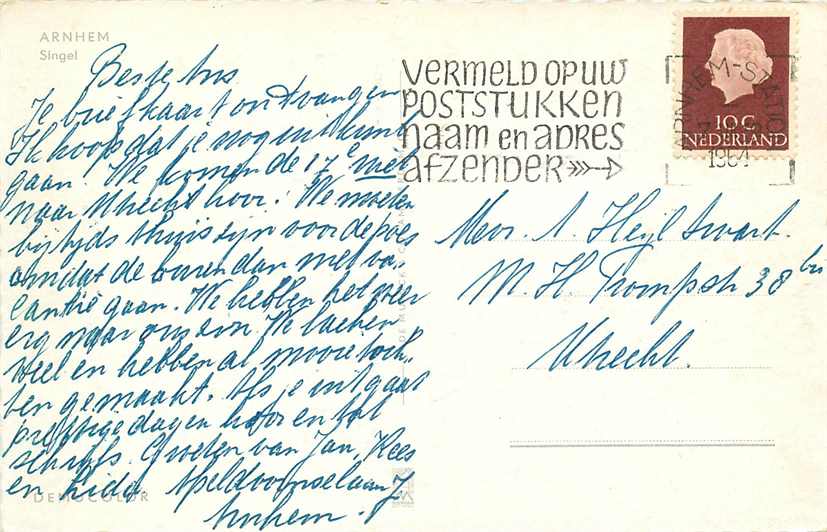 ARNHEM
Singel
Beste Ans
Je briefkaart ontvangen
Ik hoop dat je nog uit kunt
gaan. We komen de 17e niet
naar Utrecht hoor! We moeten
bijtijds thuis zijn voor de poes
omdat de buren dan met va
cantie gaan. We hebben het weer
erg naar ons zin. We lachen
veel en hebben al mooie toch
ten gemaakt. Als je uitgaat
prettige dagen hoor en tot
schrijfs. Groeten van Jan, Kees
en Lida Apeldoornselaan 7
Arnhem.
DEMOCOLOR
VERMELD OP UW
POSTSTUKKEN
NAAM en ADRES
AFZENDER
ARNHEM-STATION
1964
10 C
NEDERLAND
Mevr. A. Heijl Swart.
M. H. Trompstr 38 bis
Utrecht.